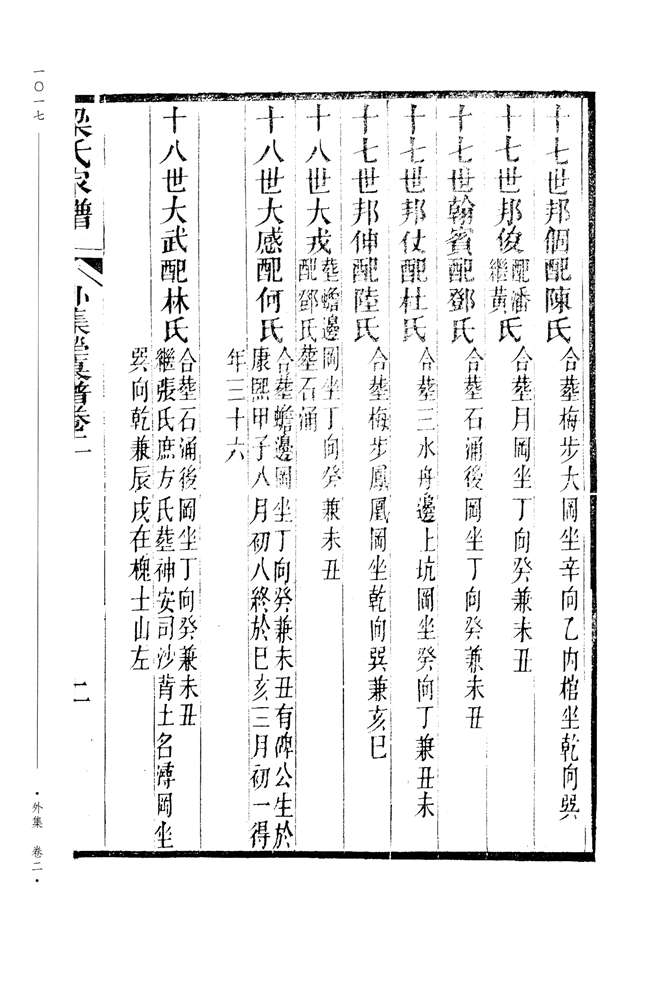 十七世邦個配陳氏 合塟梅步大岡坐辛向乙內棺坐乾向巽
十七世邦俊配潘繼黃氏 合塟月岡坐丁向癸兼未丑
十七世翰賓配鄧氏 合塟石涌後岡坐丁向癸兼未丑
十七世邦仗配杜氏 合塟三水舟邊上坑岡坐癸向丁兼丑未
十七世邦伸配陸氏 合塟梅步鳳凰岡坐乾向巽兼亥巳
十八世大戎塟蟾邊岡坐丁向癸兼未丑
配鄧氏塟石涌
十八世大感配何氏 合塟蟾邊岡坐丁向癸兼未丑有碑公生於
康熙甲子八月初八終於巳亥三月初一得
年三十六
十八世大武配林氏 合塟石涌後岡坐丁向癸兼未丑
繼張氏庶方氏塟神安司沙莆土名漙岡坐
巽向乾兼辰戌在槐士山左
梁氏家譜 外集堂夏譜卷二 二
一〇一七
·外集 卷二·